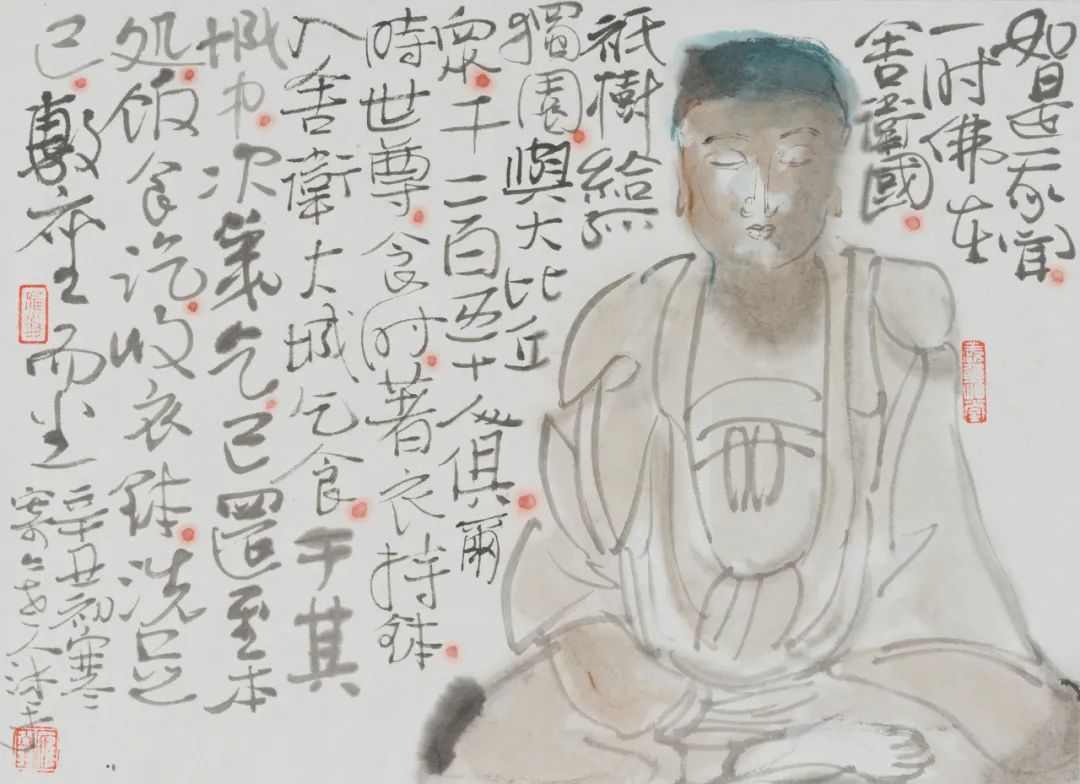 如是我聞
一时佛在
舍衛國
祇樹給
獨園與大比丘
眾千二百五十人俱爾
時世尊食时著衣持鉢
入舍衛大城乞食于其
城中次第乞已還至本
処飯食訖收衣鉢洗足
已敷座而坐
辛丑初寒